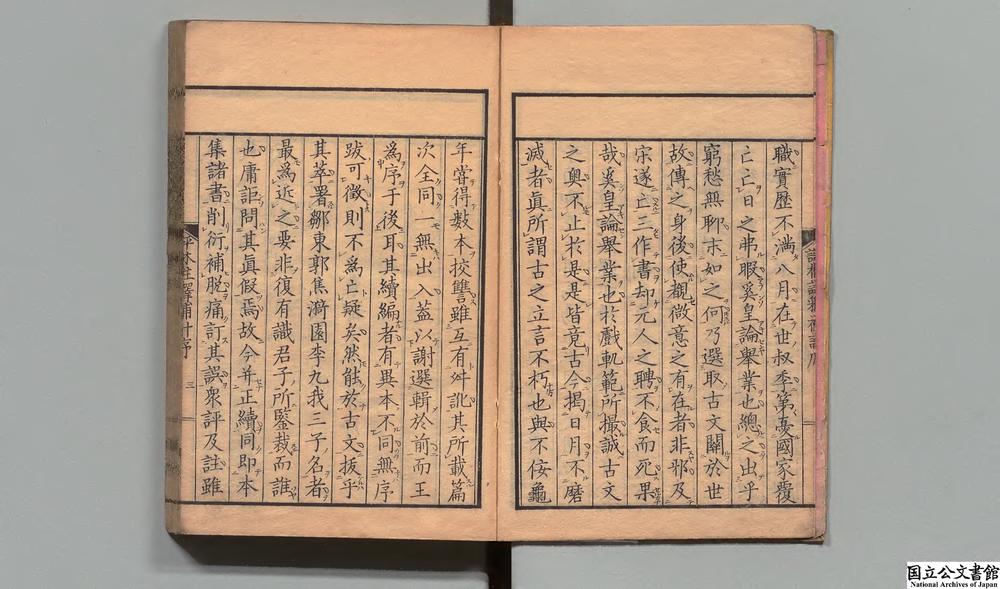 職實歷不滿八月在世叔季第憂國家覆
亡亡日之弗暇奚皇論舉業也總之出乎
窮愁無聊末如之何乃選取古文關於世
故傳之身後使覩微意之有在者非邪及
宋遂亡三作書却元人之聘不食而死果
哉奚皇論舉業也於戲軌範所撮誠古文
之奧不止於是是皆竟古今揭日月不磨
滅者眞所謂古之立言不朽也與不侫龜
年嘗得數本挍讐雖互有舛訛其所載篇
次全同一無出入葢以謝選輯於前而王
為序于後耳其續編者有異本不同無序
跋可徵則不為亡疑矣然能於古文抜乎
其萃署鄒東郭焦漪園李九我三子名者
最爲近之要非復有識君子所鑒裁而誰
也庸詎問其眞假焉故今并正續同即本
集諸書削衍補脫痛訂其誤衆評及註雖
三
国立公文書館
National Archives of Japan